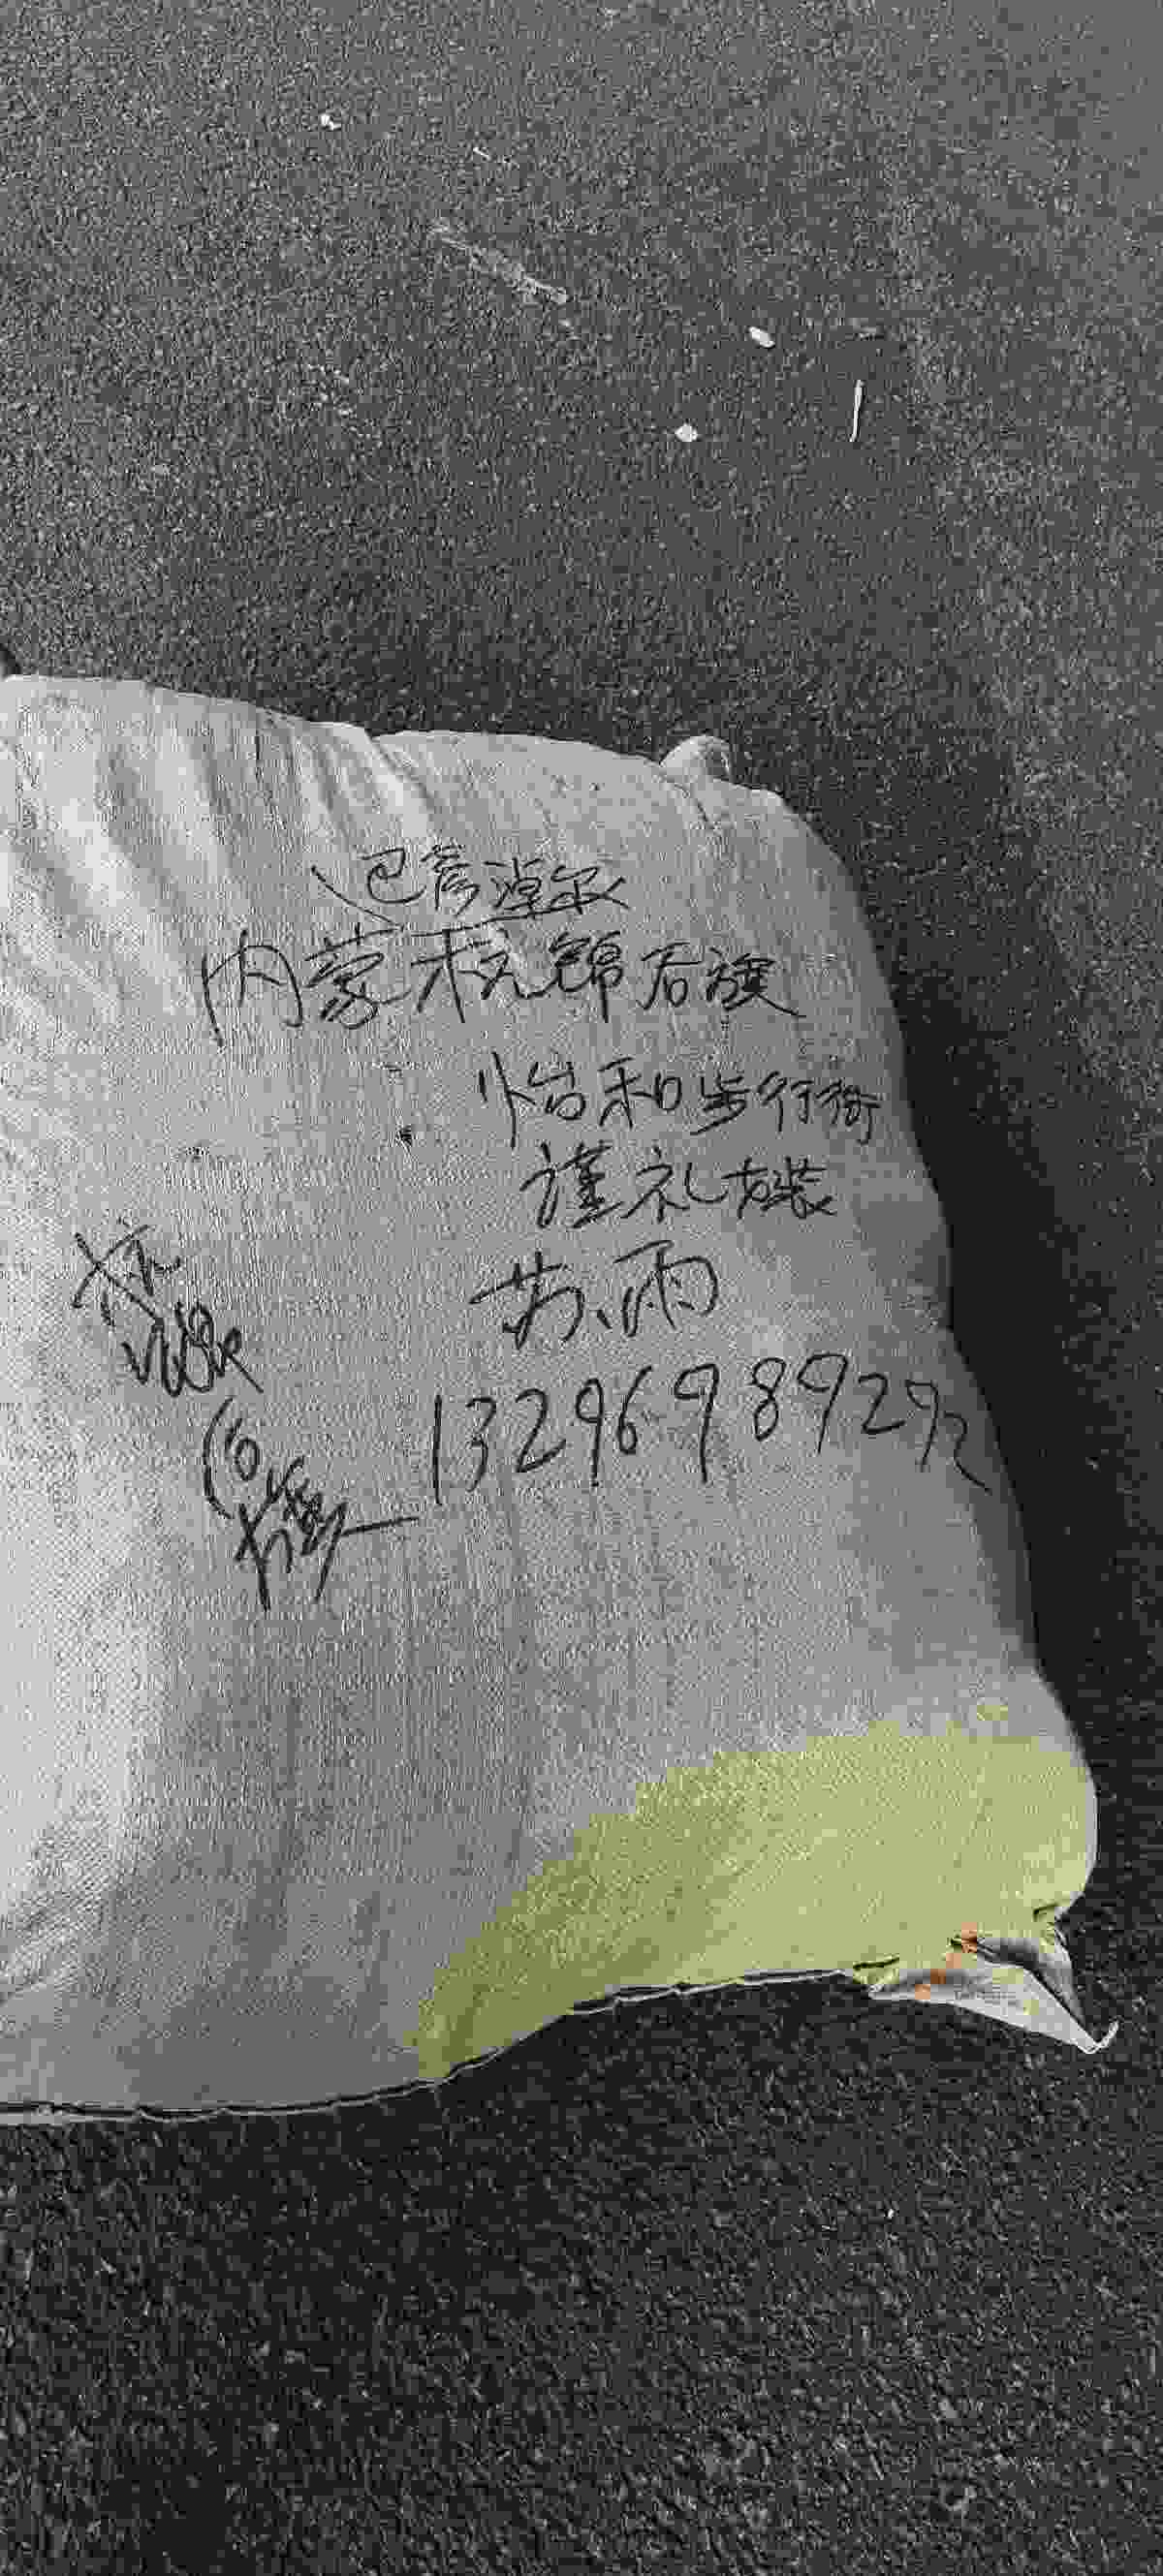 巴彦淖尔
内蒙杭锦后旗
怡和步行街
谨礼女装
苏雨
13296989292